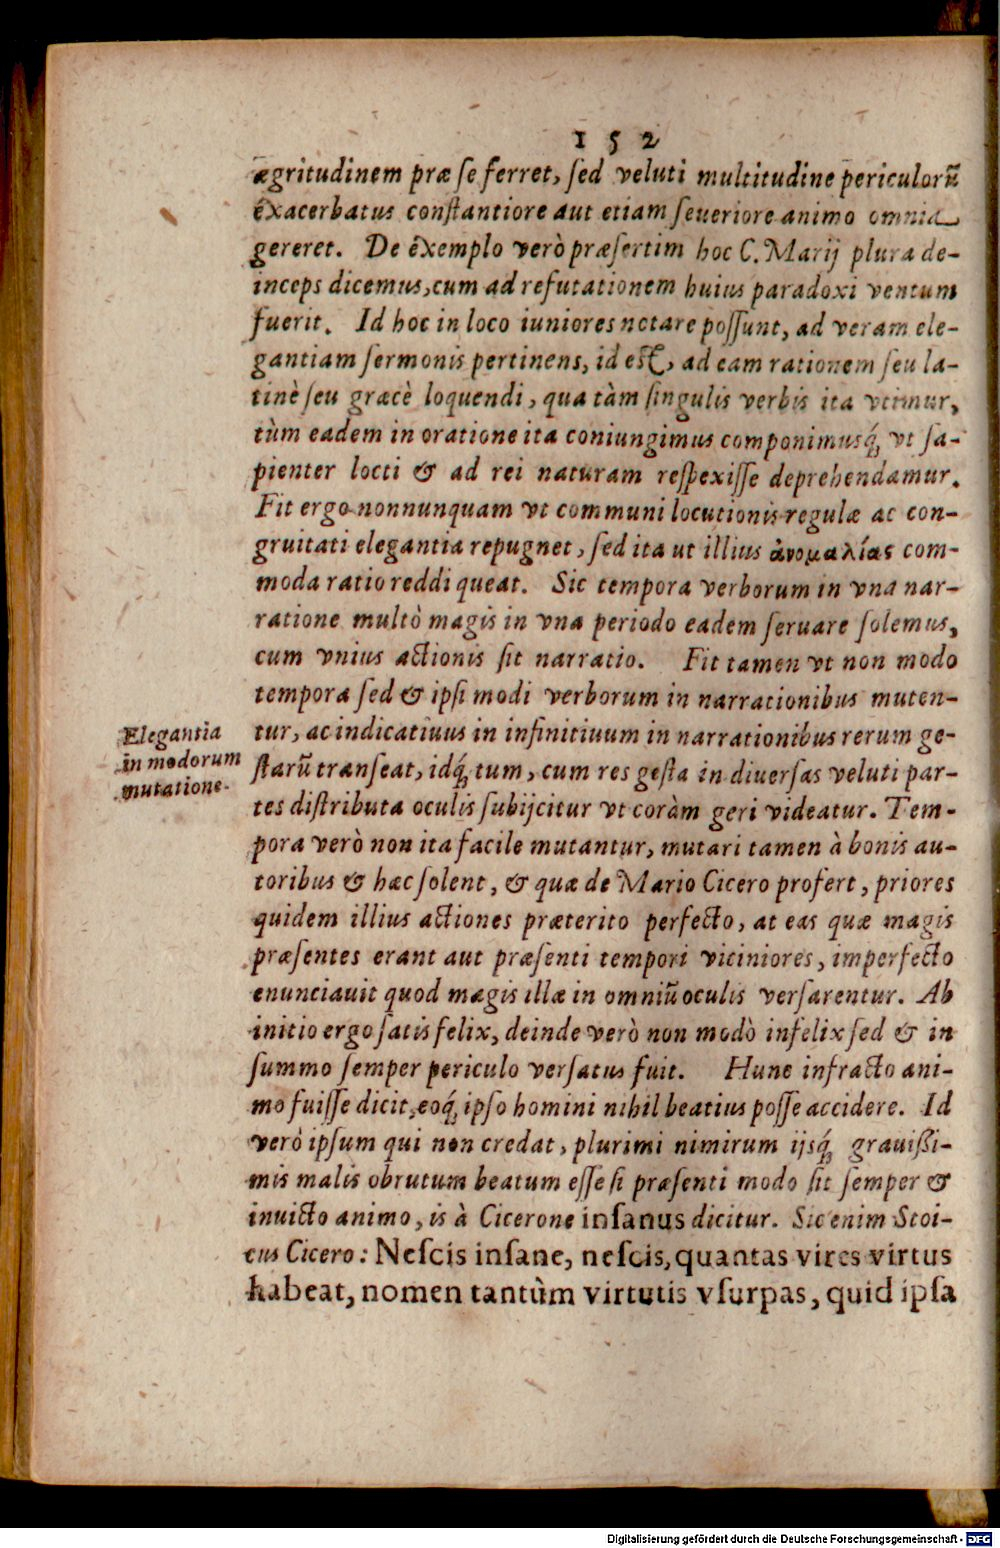 152
ægritudinem præ ſe ferret, ſed veluti multitudine periculorũ
exacerbatus conſtantiore aut etiam ſeueriore animo omnia
gereret. De exemplo verò præſertim hoc C. Marij plura de-
inceps dicemus, cum ad refutationem huius paradoxi ventum
fuerit. Id hoc in loco iuniores notare poſſunt, ad veram ele-
gantiam ſermonis pertinens, id eſt, ad eam rationem ſeu la-
tinè ſeu græcè loquendi, qua tàm ſingulis verbis ita vtimur,
tùm eadem in oratione ita coniungimus componimusq́; vt ſa-
pienter locti & ad rei naturam reſpexiſſe deprehendamur.
Fit ergo nonnunquam vt communi locutionis regulæ ac con-
gruitati elegantia repugnet, ſed ita ut illius ἀνομαλίας com-
moda ratio reddi queat. Sic tempora verborum in vna nar-
ratione multò magis in vna periodo eadem ſeruare ſolemus,
cum vnius actionis ſit narratio. Fit tamen vt non modo
tempora ſed & ipſi modi verborum in narrationibus muten-
Elegantia
in modorum
mutatione.
tur, ac indicatiuus in infinitiuum in narrationibus rerum ge-
ſtarũ tranſeat, idq́; tum, cum res geſta in diuerſas veluti par-
tes diſtributa oculis ſubijcitur vt coràm geri videatur. Tem-
pora verò non ita facile mutantur, mutari tamen à bonis au-
toribus & hæc ſolent, & quæ de Mario Cicero profert, priores
quidem illius actiones præterito perfecto, at eas quæ magis
præſentes erant aut præſenti tempori viciniores, imperfecto
enunciauit quod magis illæ in omniũ oculis verſarentur. Ab
initio ergo ſatis felix, deinde verò non modò infelix ſed & in
ſummo ſemper periculo verſatus fuit. Hunc infracto ani-
mo fuiſſe dicit, eoq́; ipſo homini nihil beatius poſſe accidere. Id
verò ipſum qui non credat, plurimi nimirum ijsq́; grauiſſi-
mis malis obrutum beatum eſſe ſi præſenti modo ſit ſemper &
inuicto animo, is à Cicerone inſanus dicitur. Sic enim Stoi-
cus Cicero: Neſcis inſane, neſcis, quantas vires virtus
habeat, nomen tantùm virtutis vſurpas, quid ipſa
Digitalisierung gefördert durch die Deutsche Forschungsgemeinschaft - DFG